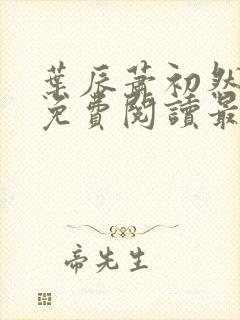 葉辰蕭初然
免費閱讀最
帝先生